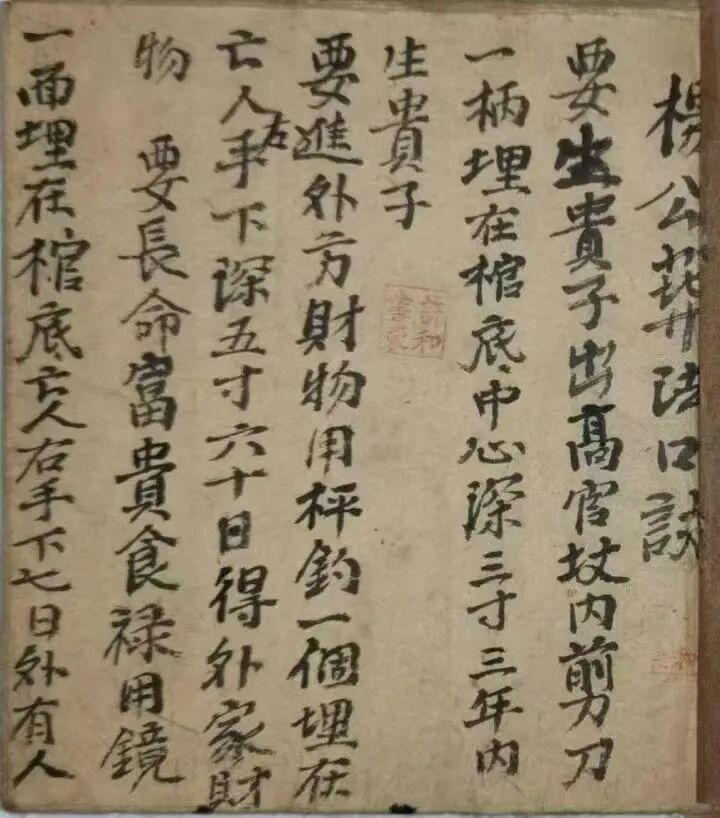 楊公葬法口訣
要生貴子出高官坟内剪刀
一柄埋在棺底中心深三寸三年内
生貴子
要進外方財物用枰鈎一個埋在
亡人右手下深五寸六十日得外家財
物 要長命富貴食禄用鏡
一面埋在棺底亡人右手下七日外有人